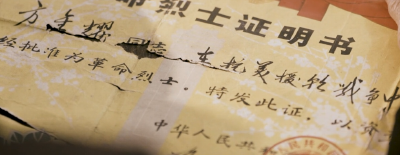 命烈士证明书
方 耀 同志 在抗美援朝战争中
经批准为革命烈士。特发此证，以资
中华人民共和